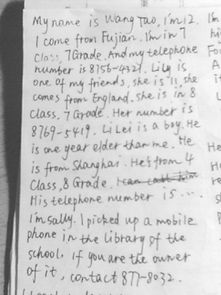 My name is Wang Tao, I'm 12.
I come from Fujian. I'm in 7
Class, 7 Grade. And my telephone
number is 8756-4321. Lily is
one of my friends, she is 11, she
comes from England. she is in 8
Class. 7 Grade. Her number is
8769-5419. Li Lei is a boy. He
is one year elder than me. He
is from Shanghai. He's from 4
Class, 8 Grade.
His telephone number is ...
I'm Sally. I picked up a mobile
phone in the library of the
school. if you are the owner
of it, contact 877-8032.